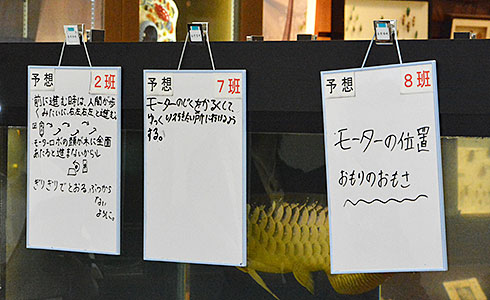 予想
2班
前に進む時は、人間が歩
くみたいに、右左右左と進む。
モーターロボの顔が木に全面
あたると進まないからし
ぎりぎりでとおる ぶつから
ない
ように。
予想
7班
モーターの
くして、
する。
予想
8班
モーターの位置
おもりのおもさ